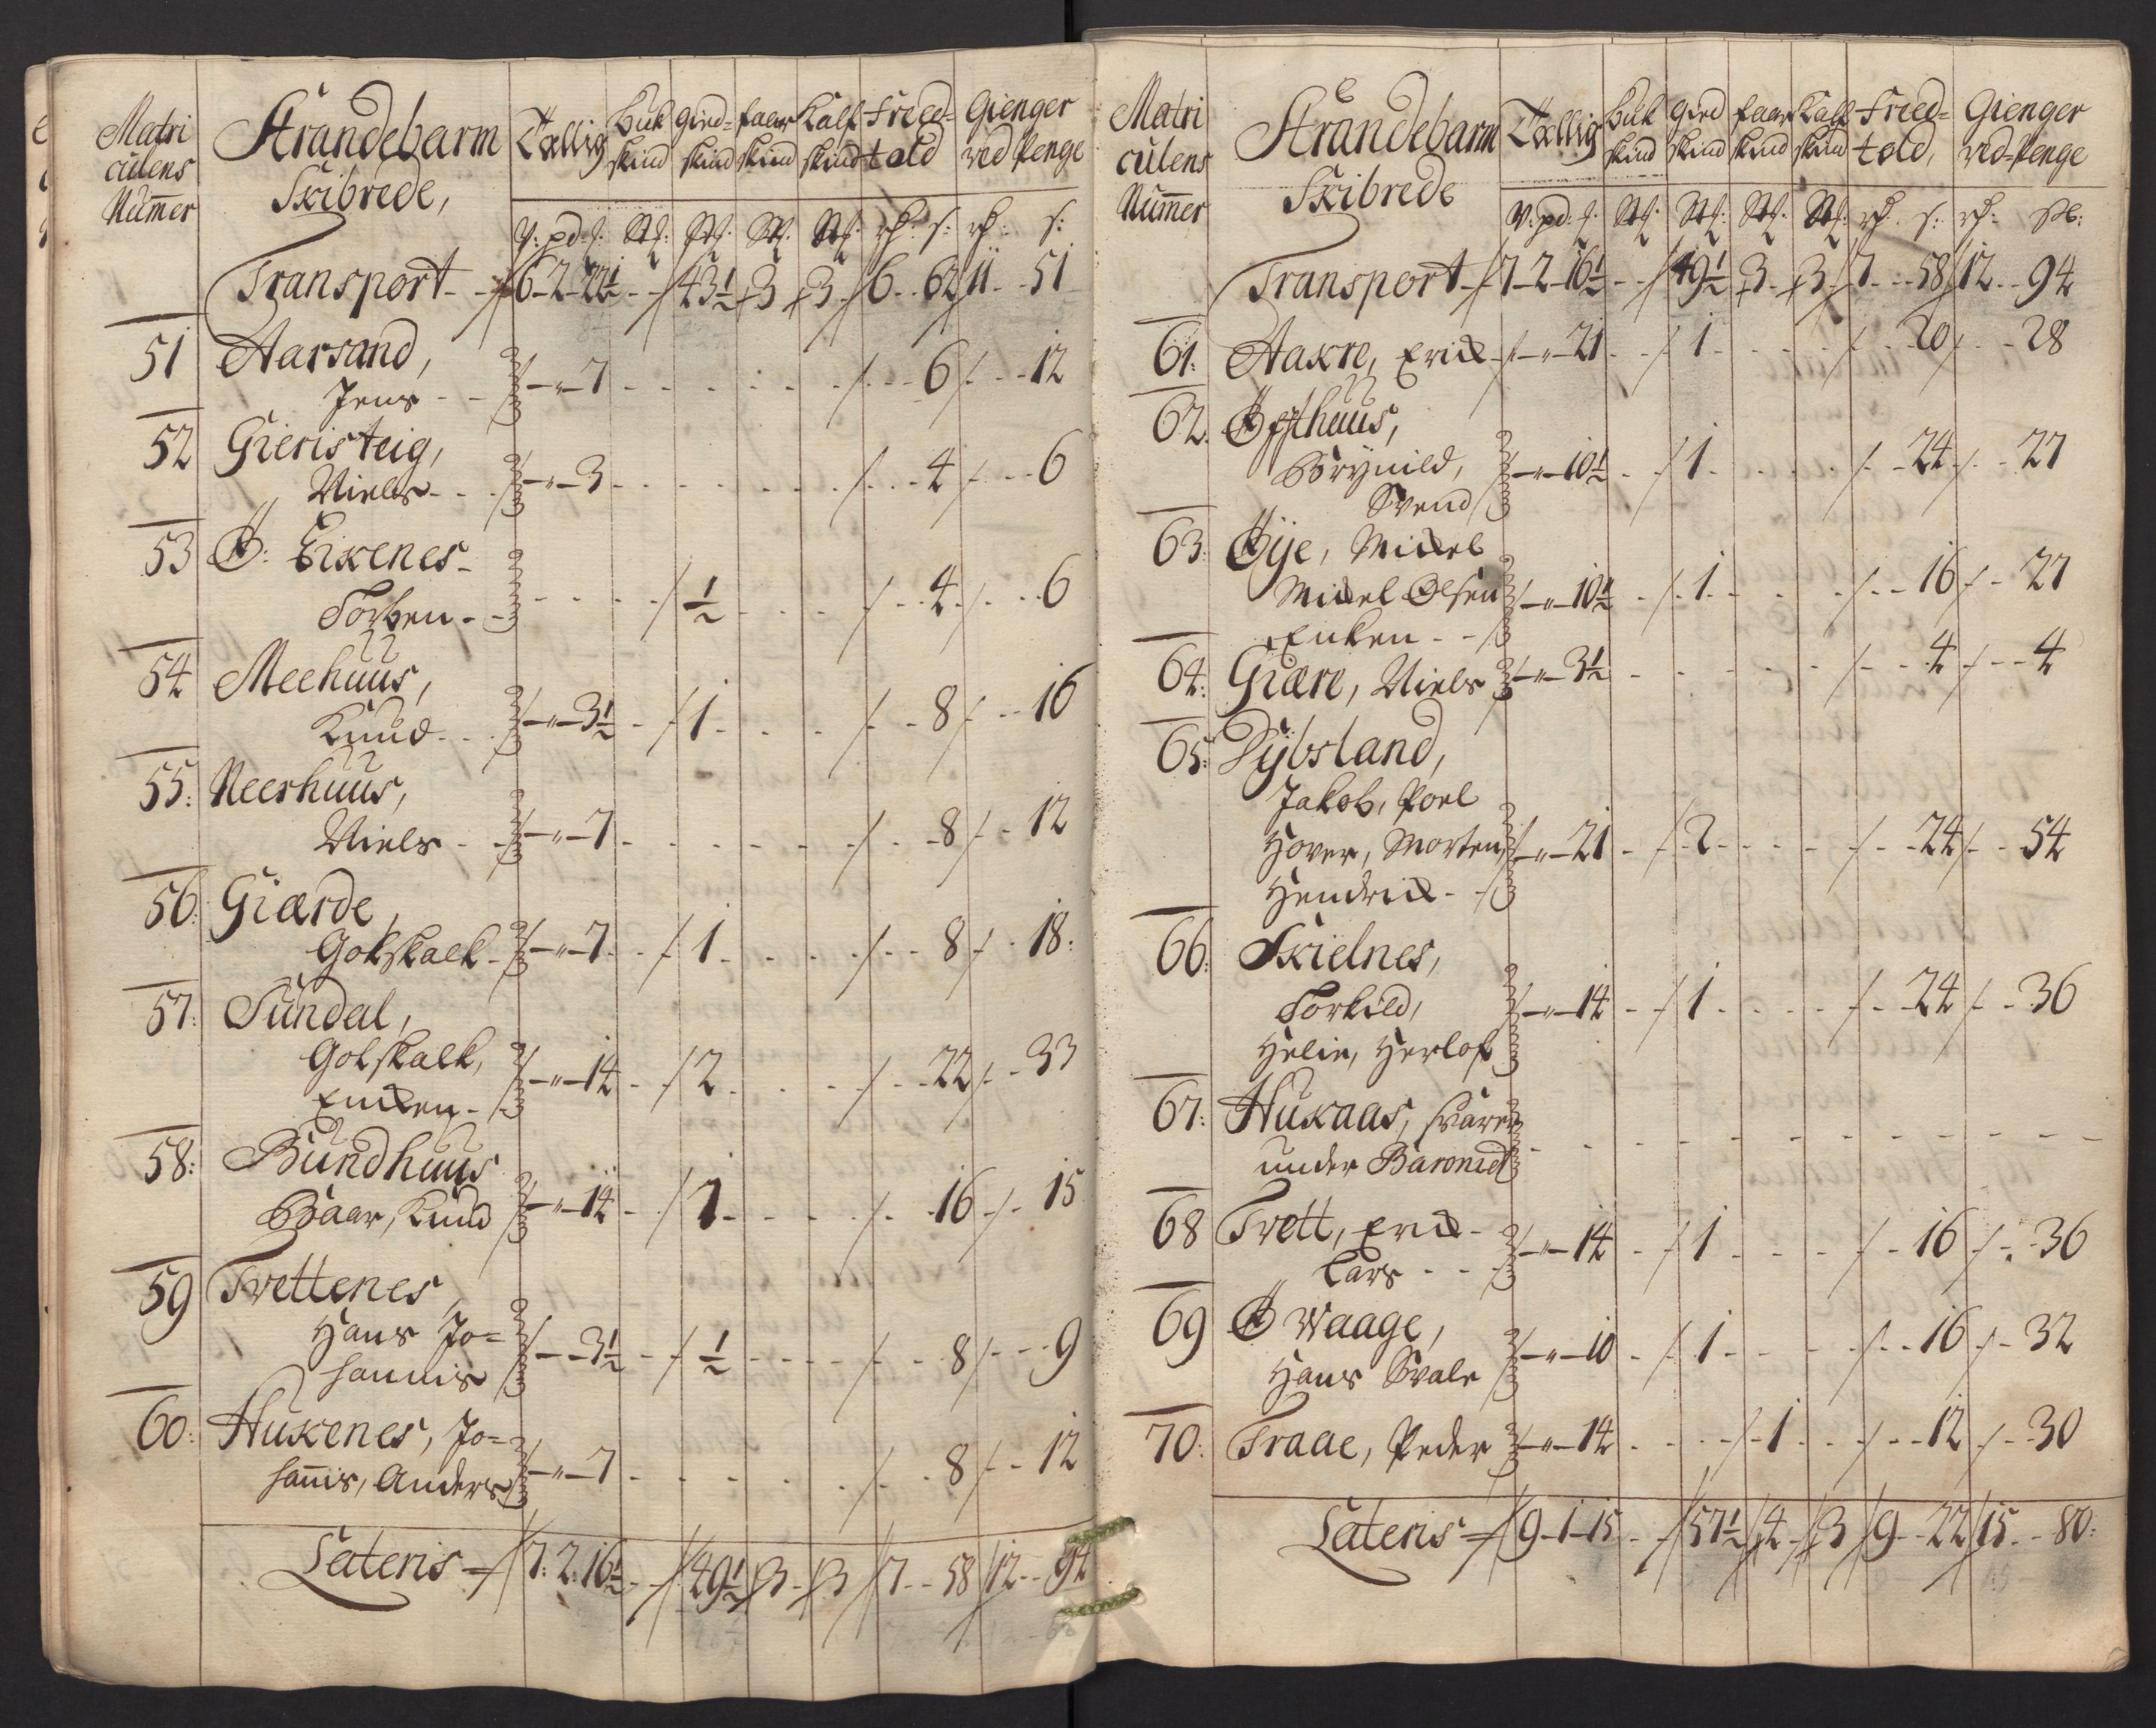 Matri
culens
Nummer
Strandebarm
Skibrede,
Tællig
Buk
skind
Gied=
skind
faar
skind
Kalf
skind
Freed=
told
Gienger
ved Penge
V: pd: s: St: St: St: St: rd: s: rd: s:
Transport - 6-2-22½ - 43½ 3 3 6 - 62 11 - 51
51 Aarsand,
Jens - - 7 - - 6 - 12
52 Gieristeig,
Niels - - 3 - - 4 - 6
53 Ø: Eikenes -
Torben - - ½ - 4 - 6
54 Meehuus,
Knud - - 3½ - 1 - 8 - 16
55: Neerhuus,
Niels - - 7 - - 8 - 12
56: Giærde,
Gotskalk - - 7 - 1 - 8 - 18:
57: Sundal,
Gotskalk, - 14 - 2 - 22 - 33
Enken -
58: Bundhuus
Baar, Knud - 14 - 1 - 16 - 15
59 Tvettenes
Hans Jo= - 3½ - ½ - 8 - 9
hannis
60: Hukenes, Jo=
hannis, Anders - 7 - - 8 - 12
Lateris - 7: 2: 16½ - 49½ 3 - 3 7 - 58 12 - 94
Matri
culens
Nummer
Strandebarm
Skibrede
Tællig
Buk
skind
Gied
skind
faar
skind
Kalf
skind
Freed=
told,
Gienger
ved=Penge
V: pd: s: St: St: St: St: rd: s: rd: sk:
Transport - 7-2-16½ - 49½ 3 - 3 7 - 58 12 - 94
61: Aakre, Erick - 21 - 1 - 20 - 28
62. Opthuus,
Brynild, - 10½ - 1 - 24 - 27
Svend
63: Øije, Mickel
Mickel Olsen - 10½ - 1 - 16 - 27
Enken - -
64: Giære, Niels - 3½ - - 4 - 4
65: Dybsland,
Jakob, Poel
Hover, Morten - 21 - 2 - 24 - 54
Hendrick -
66: Skielnes,
Torkild, - 14 - 1 - 24 - 36
Helie, Herlof
67: Hukaas, svarer
under Baroniet
68 Tvett, Erick - 14 - 1 - 16 - 36
Lars - -
69 Ø Waage,
Hans Svale - 10 - 1 - 16 - 32
70: Traae, Peder - 14 - - 1 - 12 - 30
Lateris - 9-1-15 - 57½ 4 - 3 9 - 22 15 - 80: